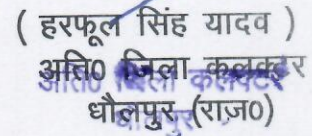 ( हरफूल सिंह यादव )
अति0 जिला कलक्टर
धौलपुर (राज़0)